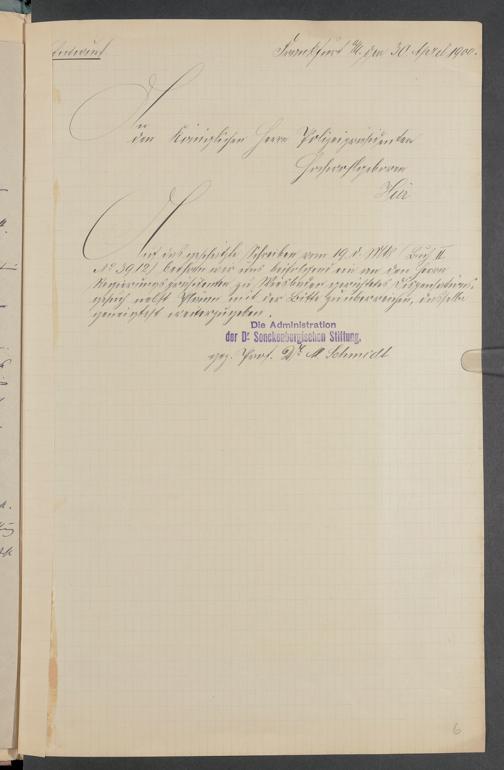 Frankfurt a/M. den 30. April 1900.
An
den Königlichen Herrn Polizeipräsidenten
Hochwohlgeboren
Hier
Auf das gefällige Schreiben vom 19. d. Mts (Buch II
No 3912) beehren wir uns beifolgend ein an den Herrn
Regierungspräsidenten zu Wiesbaden gerichtetes Dispensations-
gesuch nebst Plänen mit der Bitte zu überreichen, dasselbe
geneigtest weiterzugeben.
Die Administration
der Dr. Senckenbergischen Stiftung.
gez. Prof. Dr M Schmidt
6